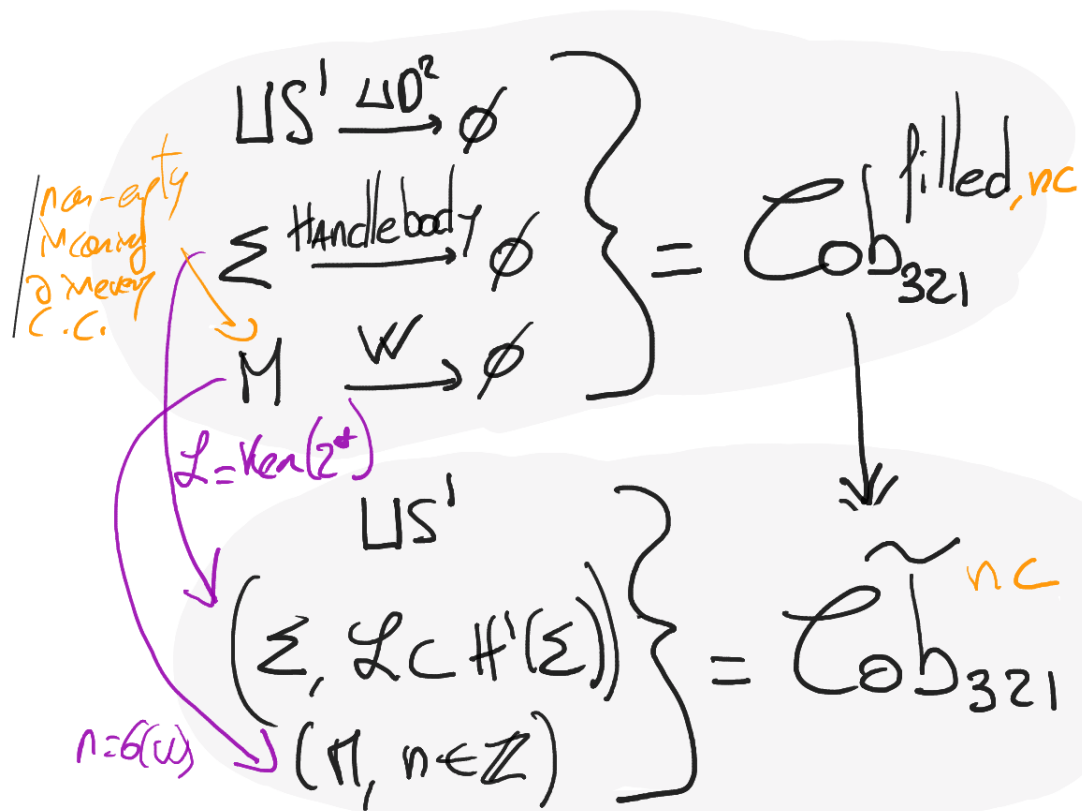 ⊔S¹ ⊔D² → ∅
non-empty
incoming
∂ in every
C.C.
Σ Handlebody → ∅
M W → ∅
= Cob₃₂₁^{filled, nc}
ℒ = Ker(2*)
⊔S¹
(Σ, ℒ ⊂ H¹(Σ))
(M, n ∈ ℤ)
n = σ(W)
= C̃ob₃₂₁^{nc}